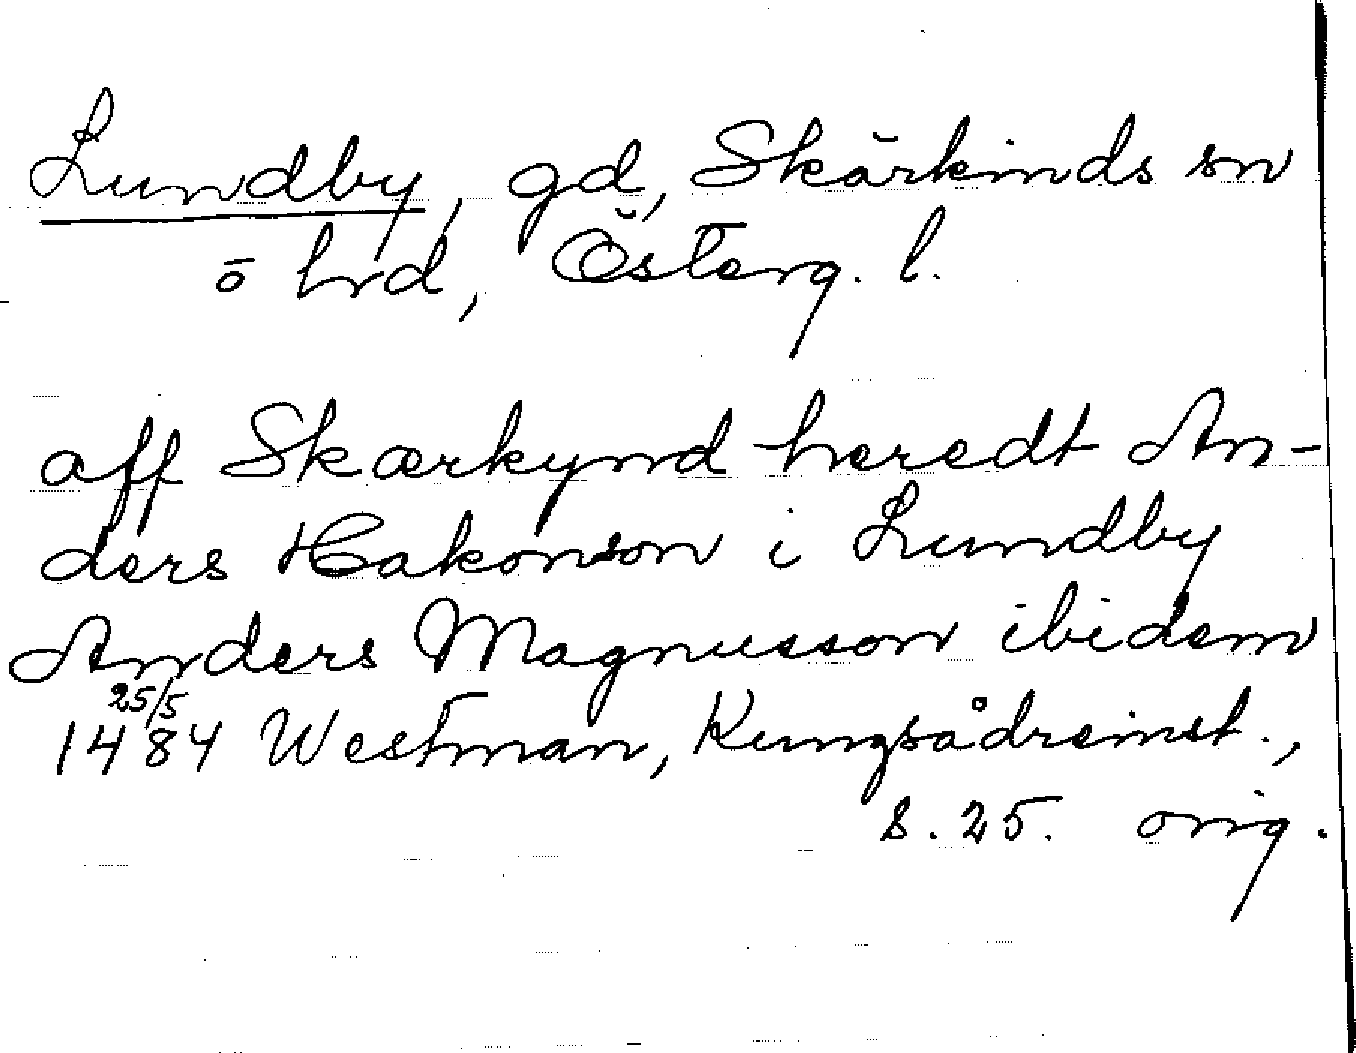 Lundby, gd, Skärkinds sn
o hrd, Österg. l.
aff Skærkynd heredt An-
ders Hakonson i Lundby
Anders Magnusson ibidem
25/5
1484 Westman, Kungsådreinst.,
s. 25. orig.